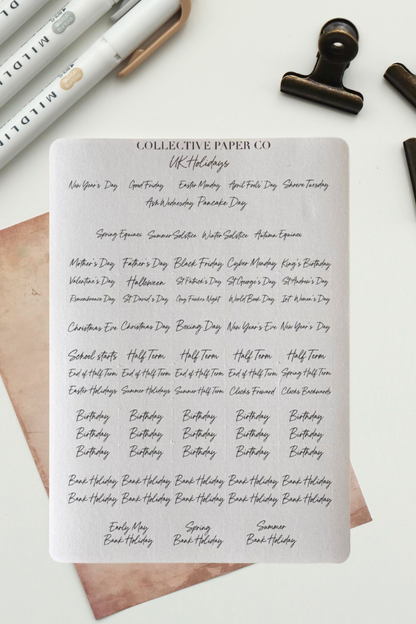 MILDLI
MILDLIN
MILDLIN
COLLECTIVE PAPER CO
UK Holidays
New Year's Day Good Friday Easter Monday April Fools' Day Shrove Tuesday
Ash Wednesday Pancake Day
Spring Equinei Summer Solstice Winter Solstice Autumn Equinei
Mother's Day Father's Day Black Friday Cyber Monday King's Birthday
Valentine's Day Halloween St Patrick's Day St George's Day St Andrew's Day
Remembrance Day St David's Day Guy Fawkes Night World Book Day Int. Women's Day
Christmas Eve Christmas Day Boxing Day New Year's Eve New Year's Day
School starts Half Term Half Term Half Term Half Term
End of Half Term End of Half Term End of Half Term End of Half Term Spring Half Term
Easter Holidays Summer Holidays Summer Half Term Clocks Forward Clocks Backwards
Birthday Birthday Birthday Birthday Birthday
Birthday Birthday Birthday Birthday Birthday
Birthday Birthday Birthday Birthday Birthday
Bank Holiday Bank Holiday Bank Holiday Bank Holiday Bank Holiday
Bank Holiday Bank Holiday Bank Holiday Bank Holiday Bank Holiday
Early May Spring Summer
Bank Holiday Bank Holiday Bank Holiday